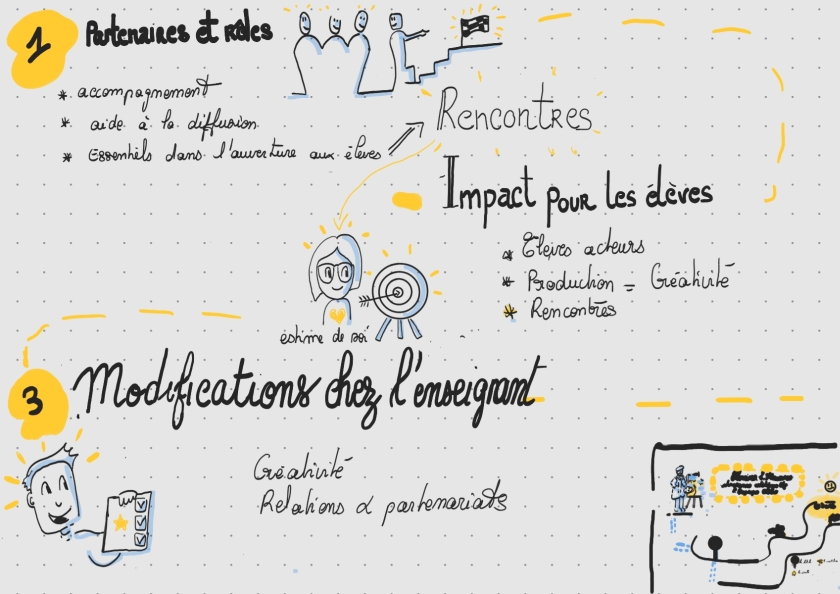 1
Partenaires et rôles
* accompagnement
* aide à la diffusion
* Essentiels dans l'ouverture aux élèves
Rencontres
Impact pour les élèves
* Elèves acteurs
* Production = Créativité
* Rencontres
estime de soi
3
Modifications chez l'enseignant
Créativité
Relations & partenariats